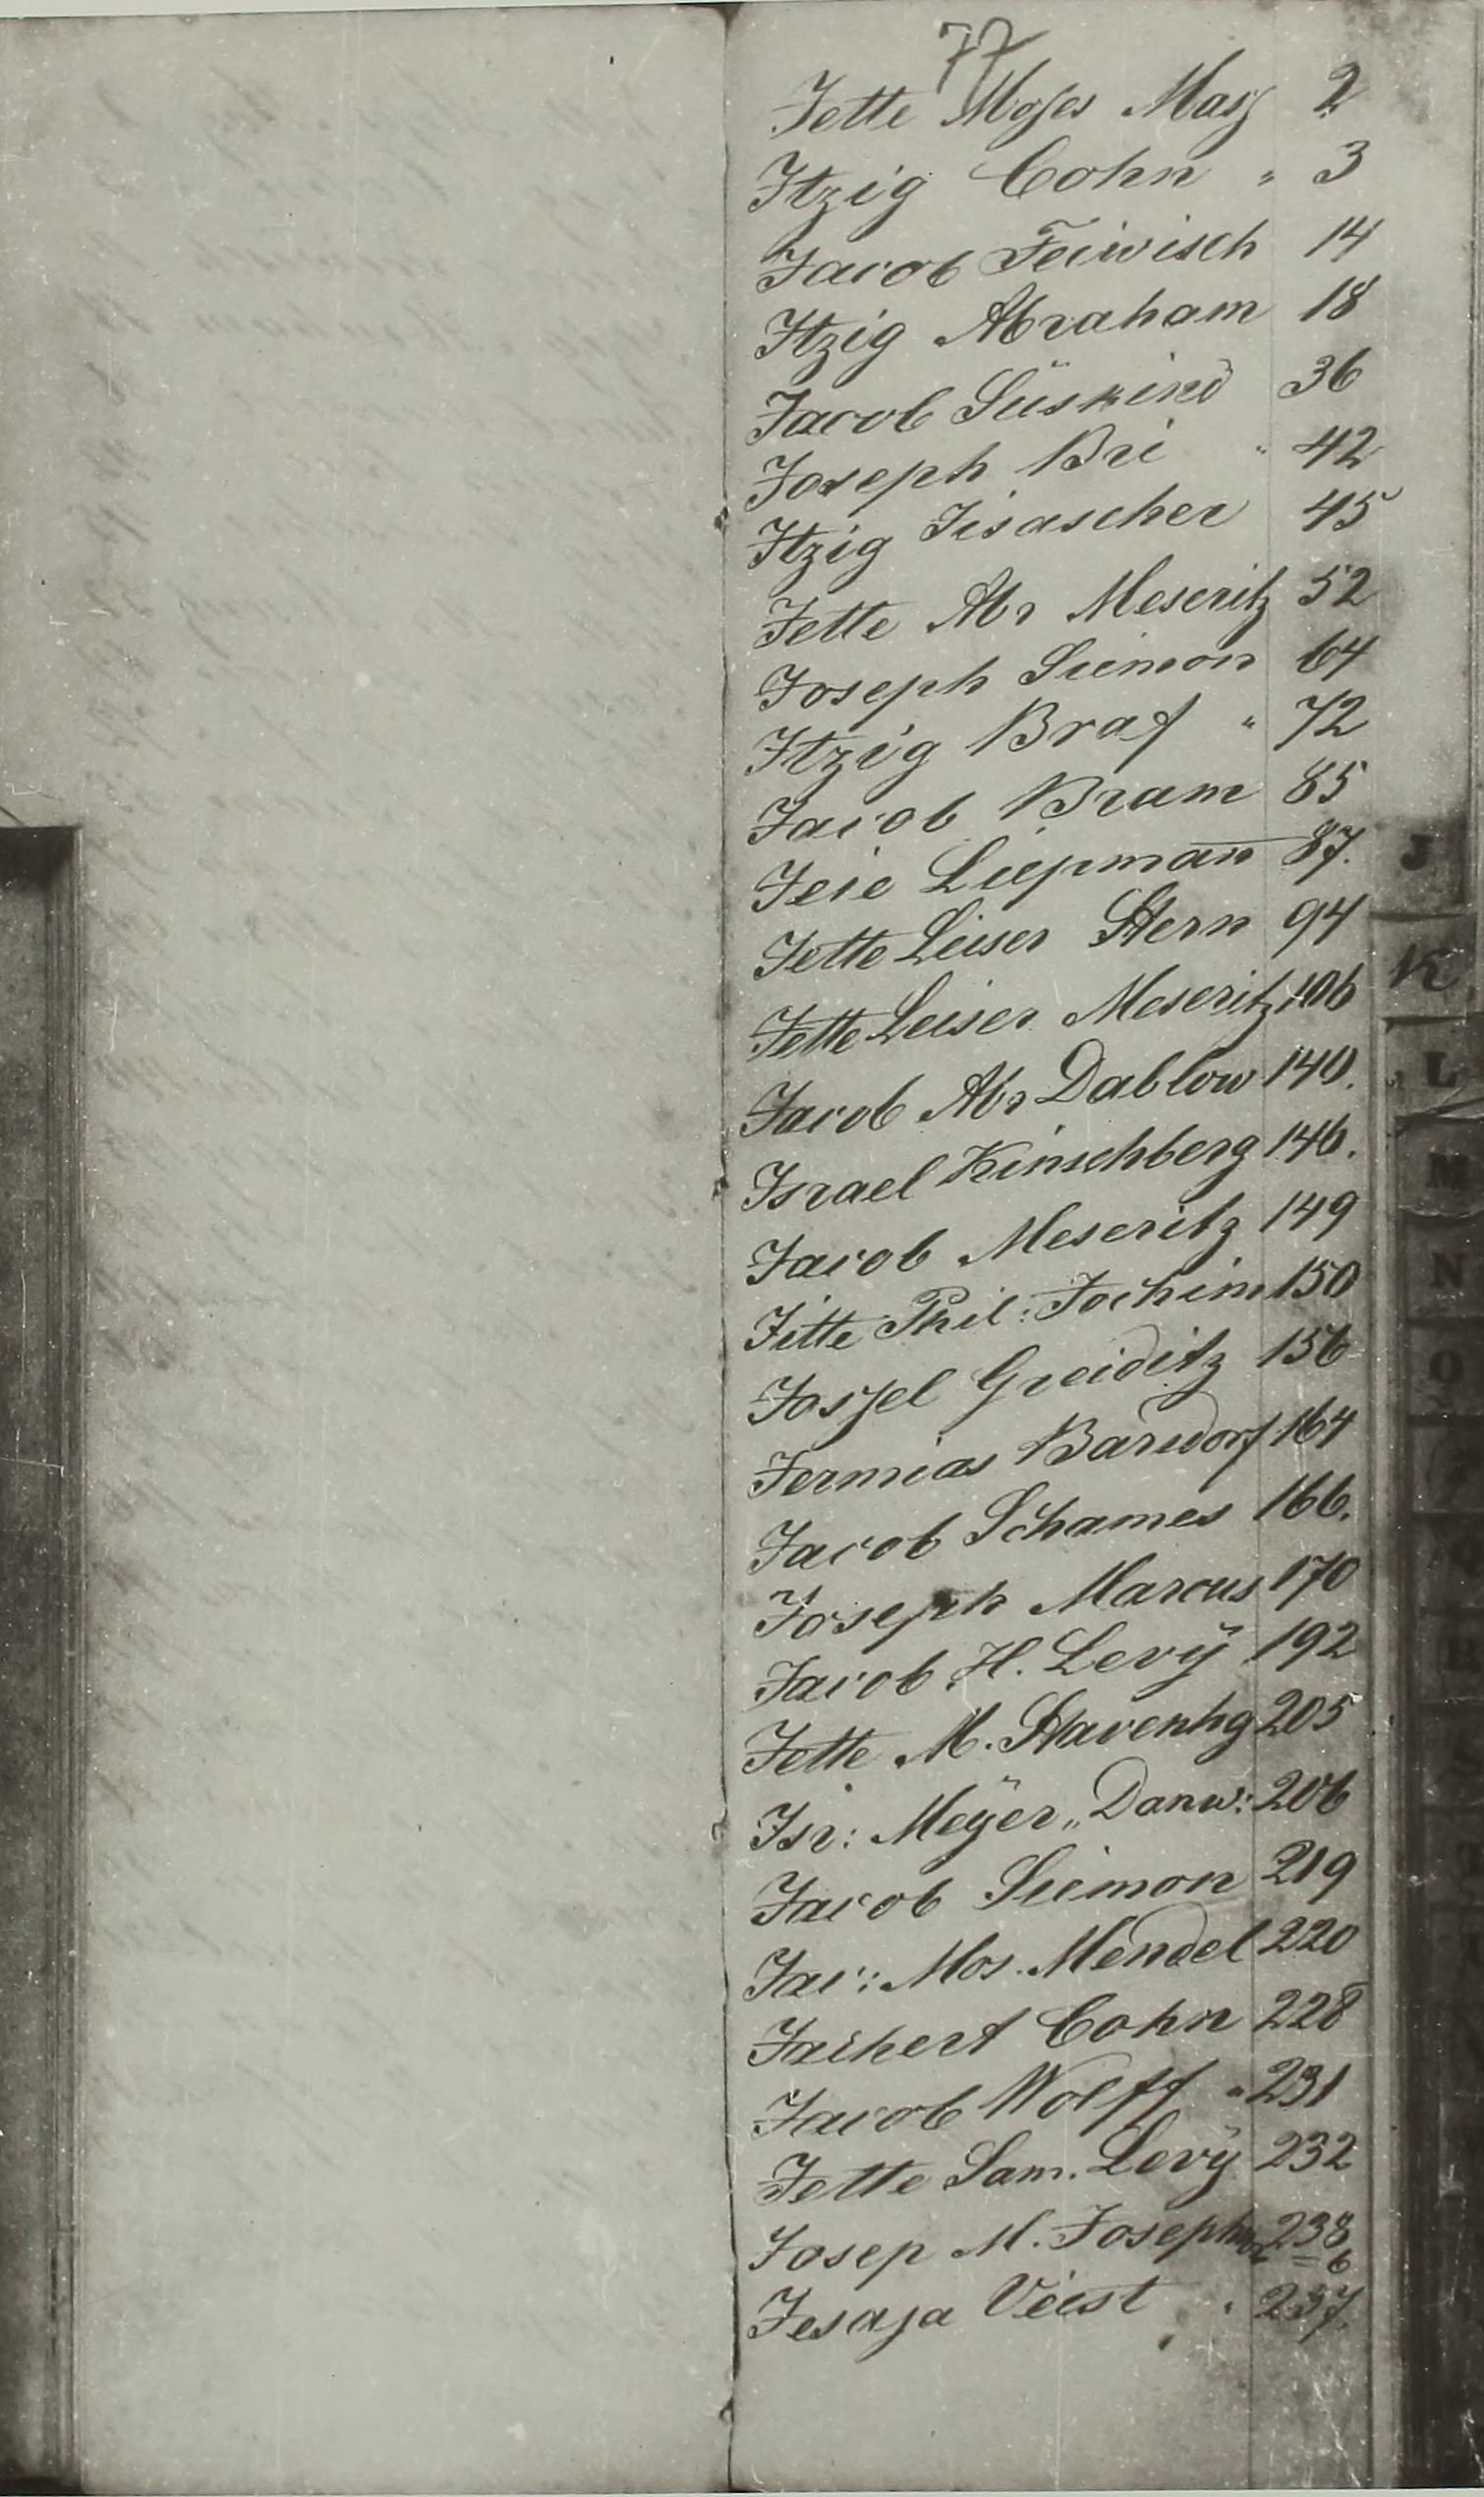 77
Jette Moses Masz 2
Itzig Cohn " 3
Jacob Feiwisch 14
Itzig Abraham 18
Jacob Süskind 36
Joseph Bri " 42
Itzig Jisascher 45
Jette Abr Meseritz 52
Joseph Siemon 64
Itzig Braf " 72
Jacob Bram 85
Jeie Liepman̄ 87.
Jette Leiser Stern 94
Jette Leiser Meseritz 106
Jacob Abr Dablow 140.
Israel Kinschberg 146.
Jacob Meseritz 149
Jitte Phil: Jochim 150
Josjel Greiditz 156
Jermias Barsdorf 164
Jacob Schames 166.
Joseph Marcus 170
Jacob H. Levÿ 192
Jette M. Stavenhg 205
Isr: Meÿer „ Danw: 206
Jacob Siemon 219
Jac: Mos. Mendel 220
Jachert Cohn 228
Jacob Wolff " 231
Jette Sam. Levÿ 232
Josep M. Joseph 238
6
Jesaja Veist " 237.
J
K
L
M
N
O